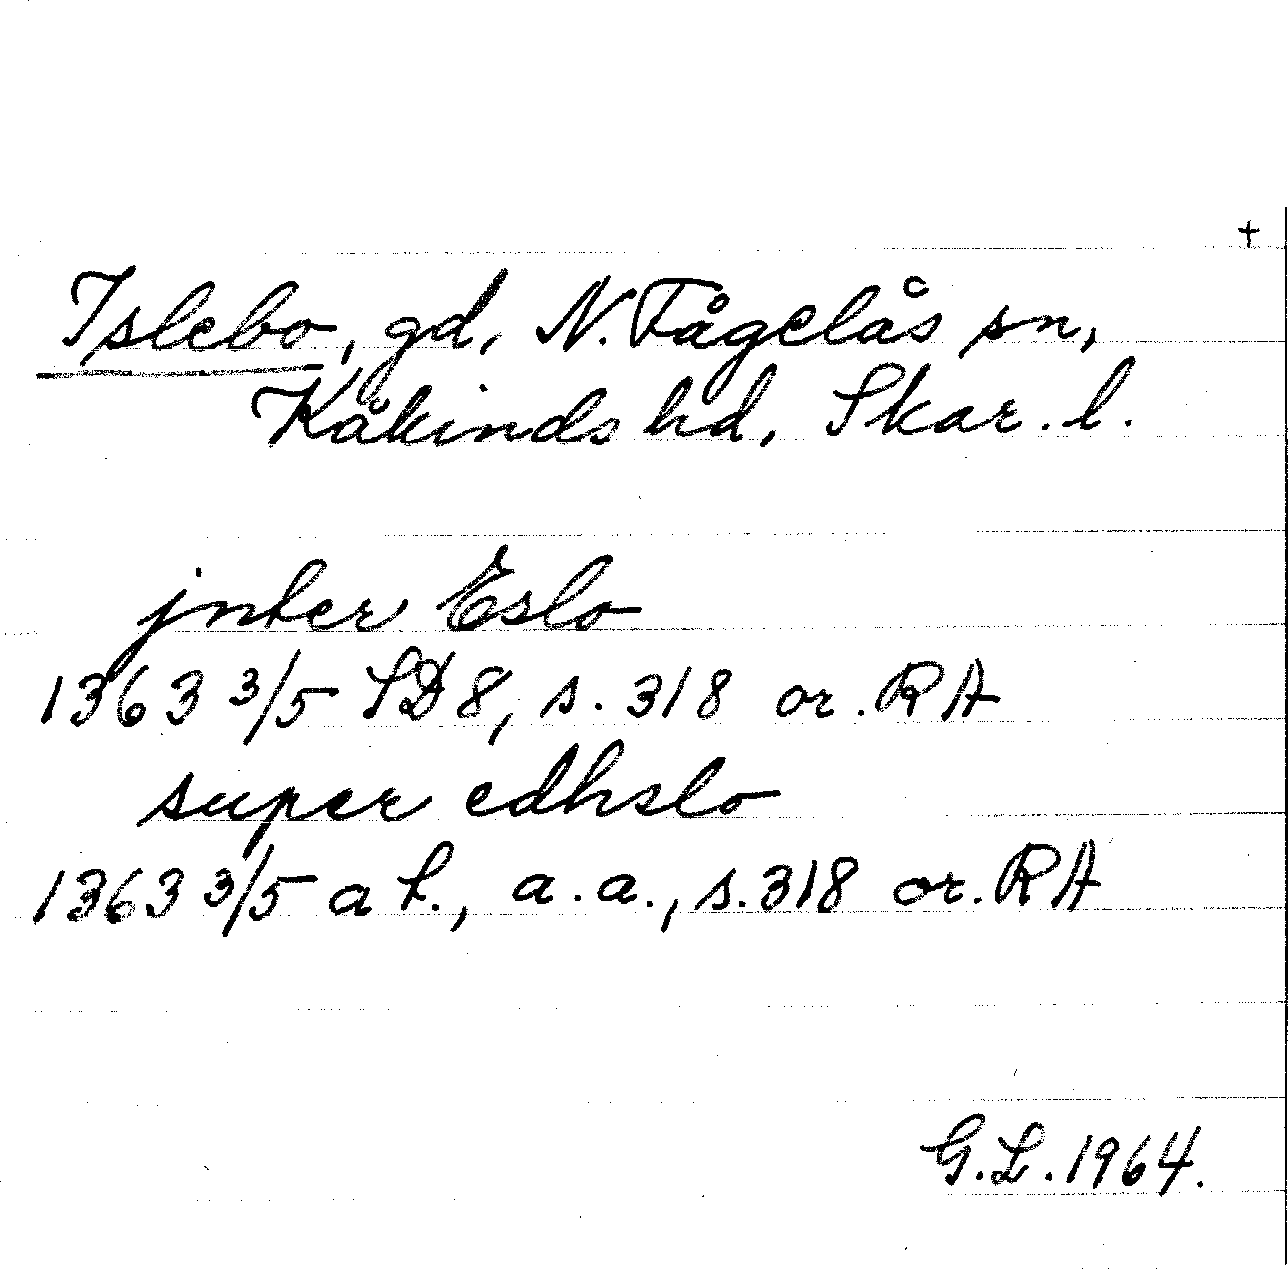 +
Islebo, gd, N. Fågelås sn,
Kåkinds hd, Skar. l.
jnter Eslo
1363 3/5 SD 8, s. 318 or. RA
super edhslo
1363 3/5 a St., a.a., s. 318 or. RA
G.L. 1964.